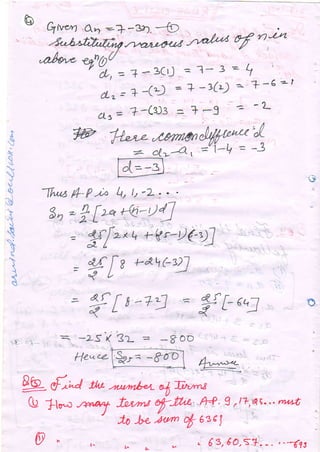 Given an = 7-3n. —①
Substituting various values of n in
above eqn ①
d₁ = 7-3(1) = 7-3 = 4
d₂ = 7-(2) = 7-3(2) = 7-6 = 1
d₃ = 7-(3)3 = 7-9 = -2
Here common difference 'd'
= d₂-a₁ = 1-4 = -3
d=-3
Thus A.P is 4, 1, -2 ...
Sn = n/2 [2a+(n-1)d]
= 25/2 [2×4 +(25-1)(-3)]
= 25/2 [8 +24(-3)]
= 25/2 [8-72] = 25/2 [-64]
= -25×32 = -800
Hence S₂₅ = -800 Answer
Find the number of terms
① How many terms of the A.P. 9, 17, 25... must
to be sum of 636?
(ii) " " " " " 63, 60, 57... 693